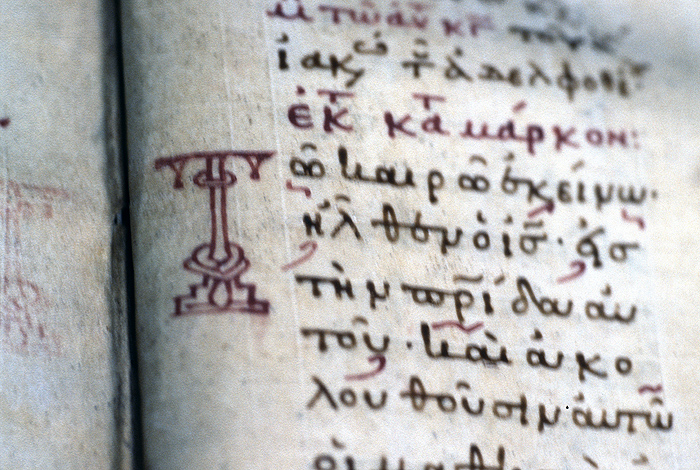 ἰακώ τ ἀδελφοθέ
ἐκ τ κατ μάρκον:
Τῶ καιρῶ ἐκείνω·
ἦλθεν ὁ ἰς̅· εἰς
τὴν πρ̅ίδα αὐ
τοῦ· καὶ ἀκο
λουθοῦσιν αὐτῶ
οἱ μαθ